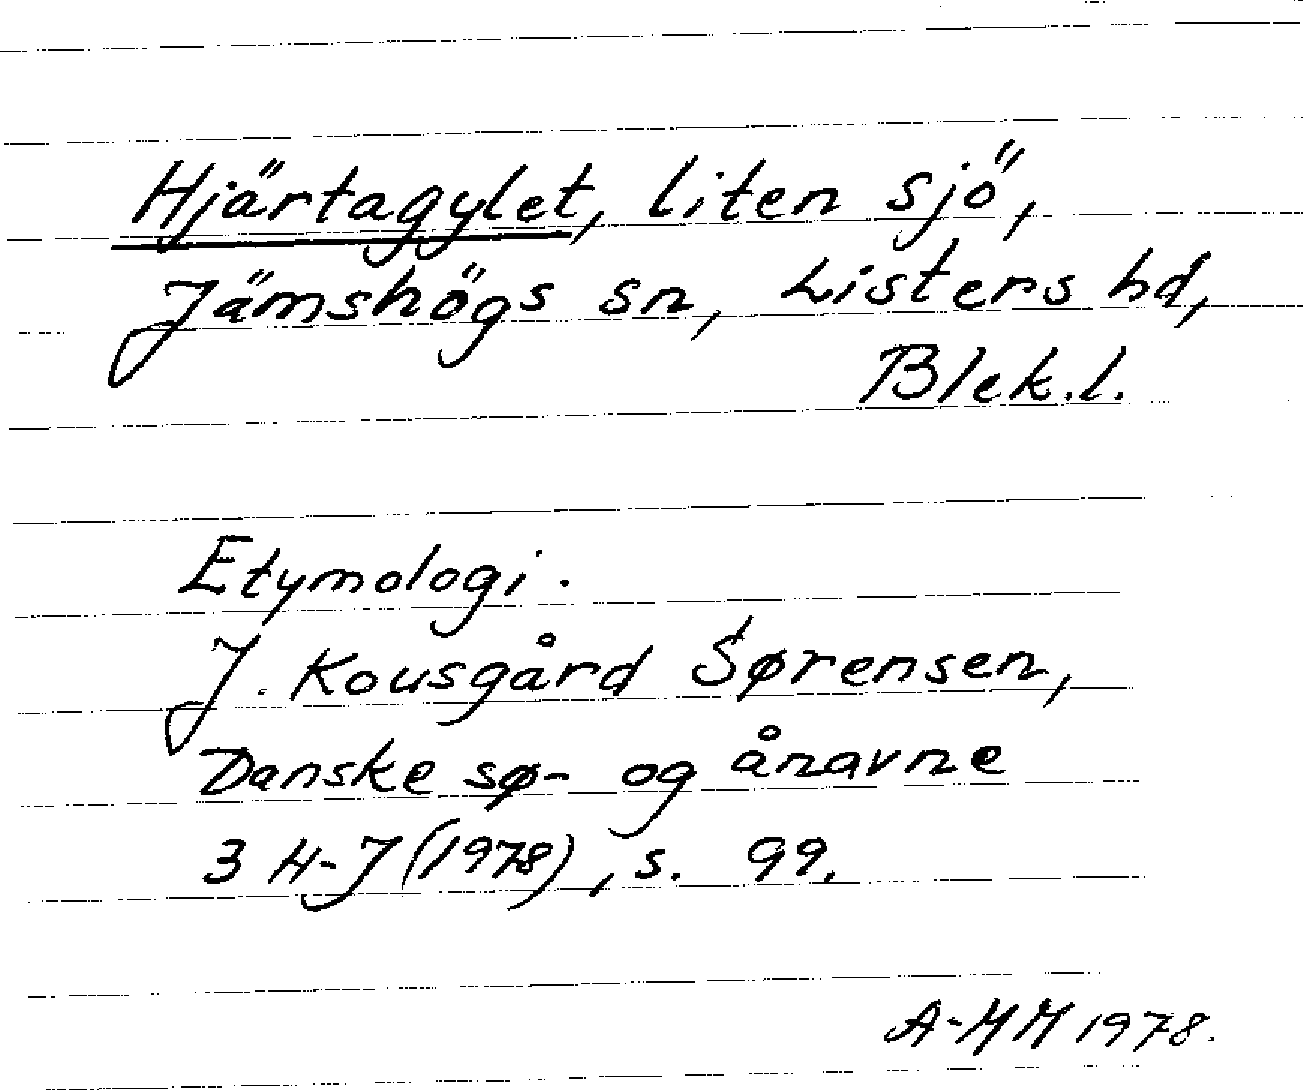 Hjärtagylet, liten sjö,
Jämshögs sn, Listers hd,
Blek.l.
Etymologi.
J. Kousgård Sørensen,
Danske sø- og ånavne
3 H-J (1978), s. 99.
A-MM 1978.